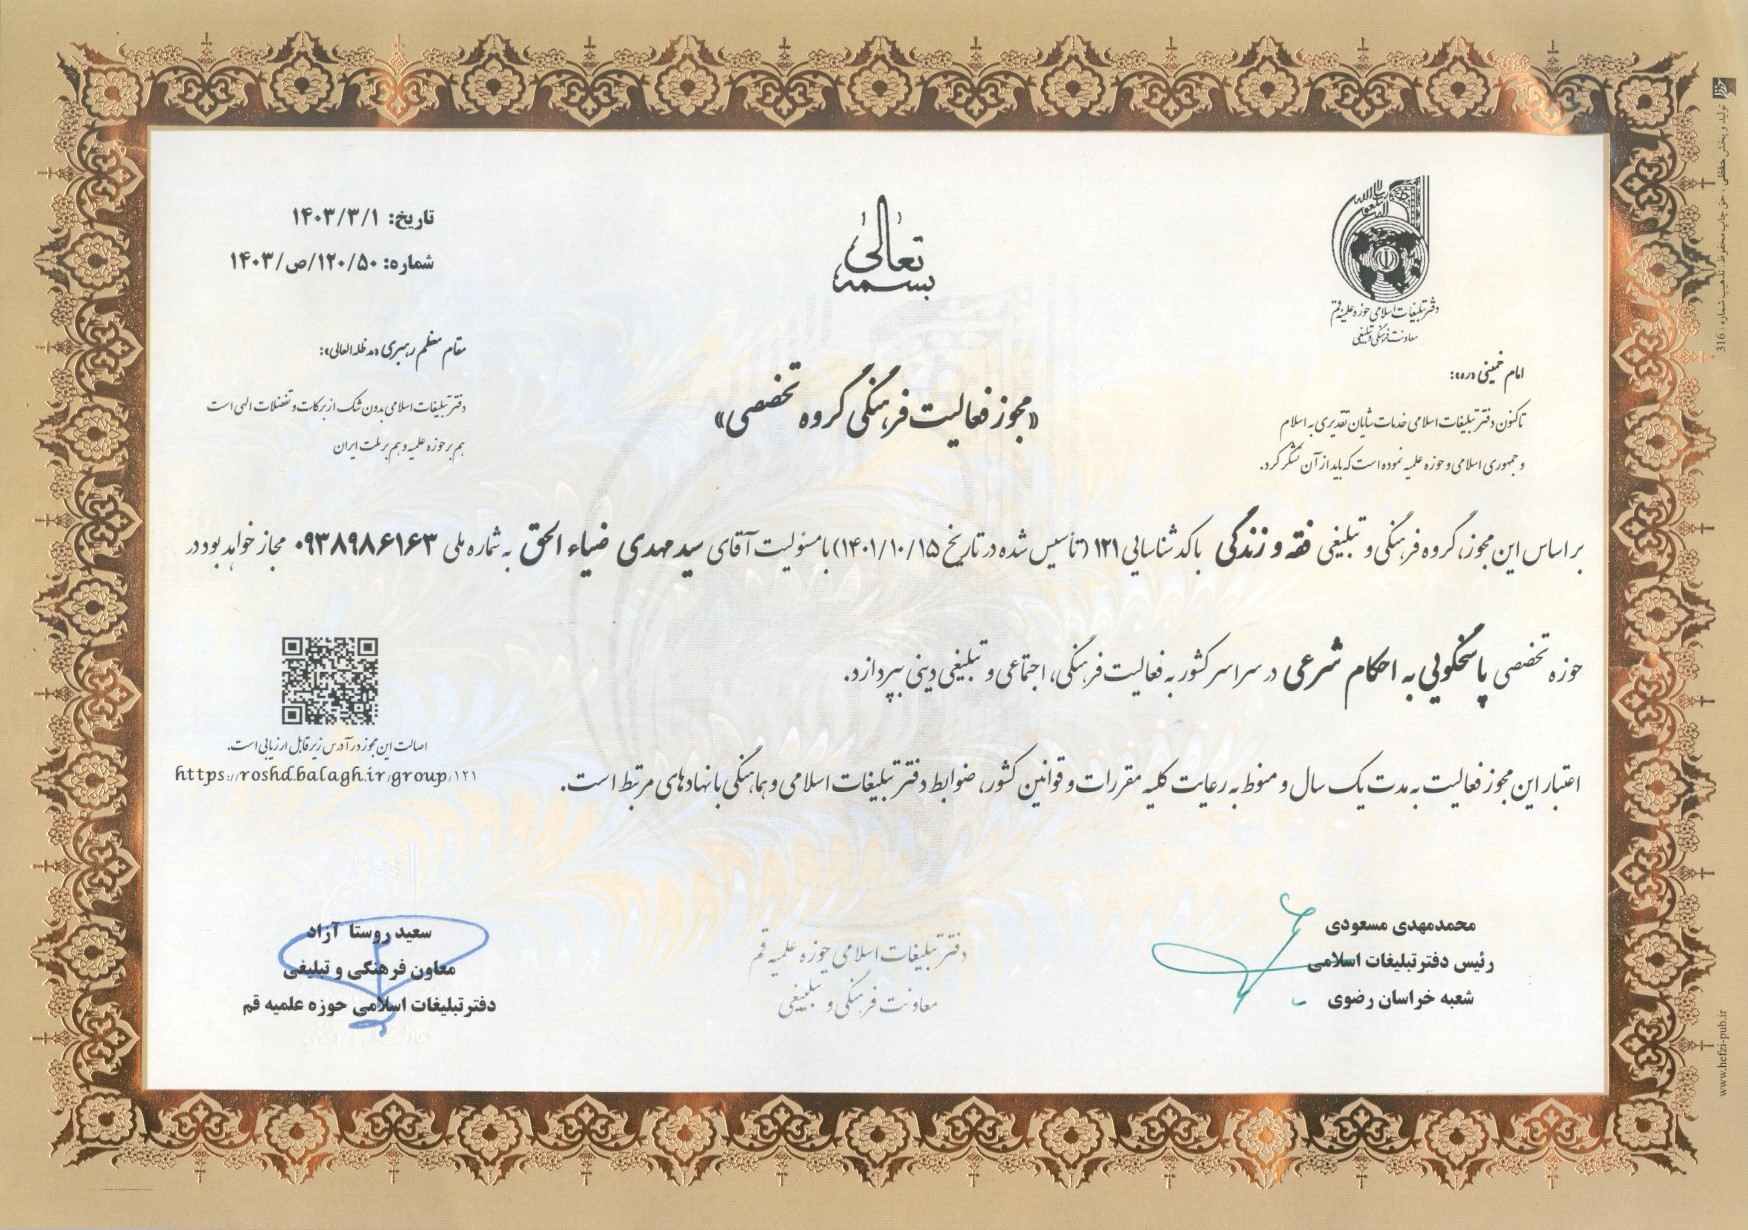 بسمه تعالی
دفتر تبلیغات اسلامی حوزه علمیه قم
معاونت فرهنگی و تبلیغی
تاریخ: ۱۴۰۳/۳/۱
شماره: ۱۲۰/۵۰/ص/۱۴۰۳
امام خمینی «ره»:
تاکنون دفتر تبلیغات اسلامی خدمات شایان تقدیری به اسلام
و جمهوری اسلامی و حوزه علمیه نموده است که باید از آن تشکر کرد.
مقام معظم رهبری «مدظله العالی»:
دفتر تبلیغات اسلامی بدون شک از برکات و تفضلات الهی است
هم بر حوزه علمیه و هم بر ملت ایران
«مجوز فعالیت فرهنگی گروه تخصصی»
بر اساس این مجوز، گروه فرهنگی و تبلیغی فقه و زندگی با کد شناسایی ۱۲۱ (تأسیس شده در تاریخ ۱۴۰۱/۱۰/۱۵) با مسئولیت آقای سید مهدی ضیاء الحق به شماره ملی ۰۹۳۸۹۸۶۱۶۳ مجاز خواهد بود در
حوزه تخصصی پاسخگویی به احکام شرعی در سراسر کشور به فعالیت فرهنگی، اجتماعی و تبلیغی دینی بپردازد.
اعتبار این مجوز فعالیت به مدت یک سال و منوط به رعایت کلیه مقررات و قوانین کشور، ضوابط دفتر تبلیغات اسلامی و هماهنگی با نهادهای مرتبط است.
اصالت این مجوز در آدرس زیر قابل ارزیابی است.
https://roshd.balagh.ir/group/۱۲۱
محمدمهدی مسعودی
رئیس دفتر تبلیغات اسلامی
شعبه خراسان رضوی
دفتر تبلیغات اسلامی حوزه علمیه قم
معاونت فرهنگی و تبلیغی
سعید روستا آزاد
معاون فرهنگی و تبلیغی
دفتر تبلیغات اسلامی حوزه علمیه قم
تولید و پخش حفظی . حق چاپ محفوظ . تذهیب شماره : 316
www.hefzi-pub.ir